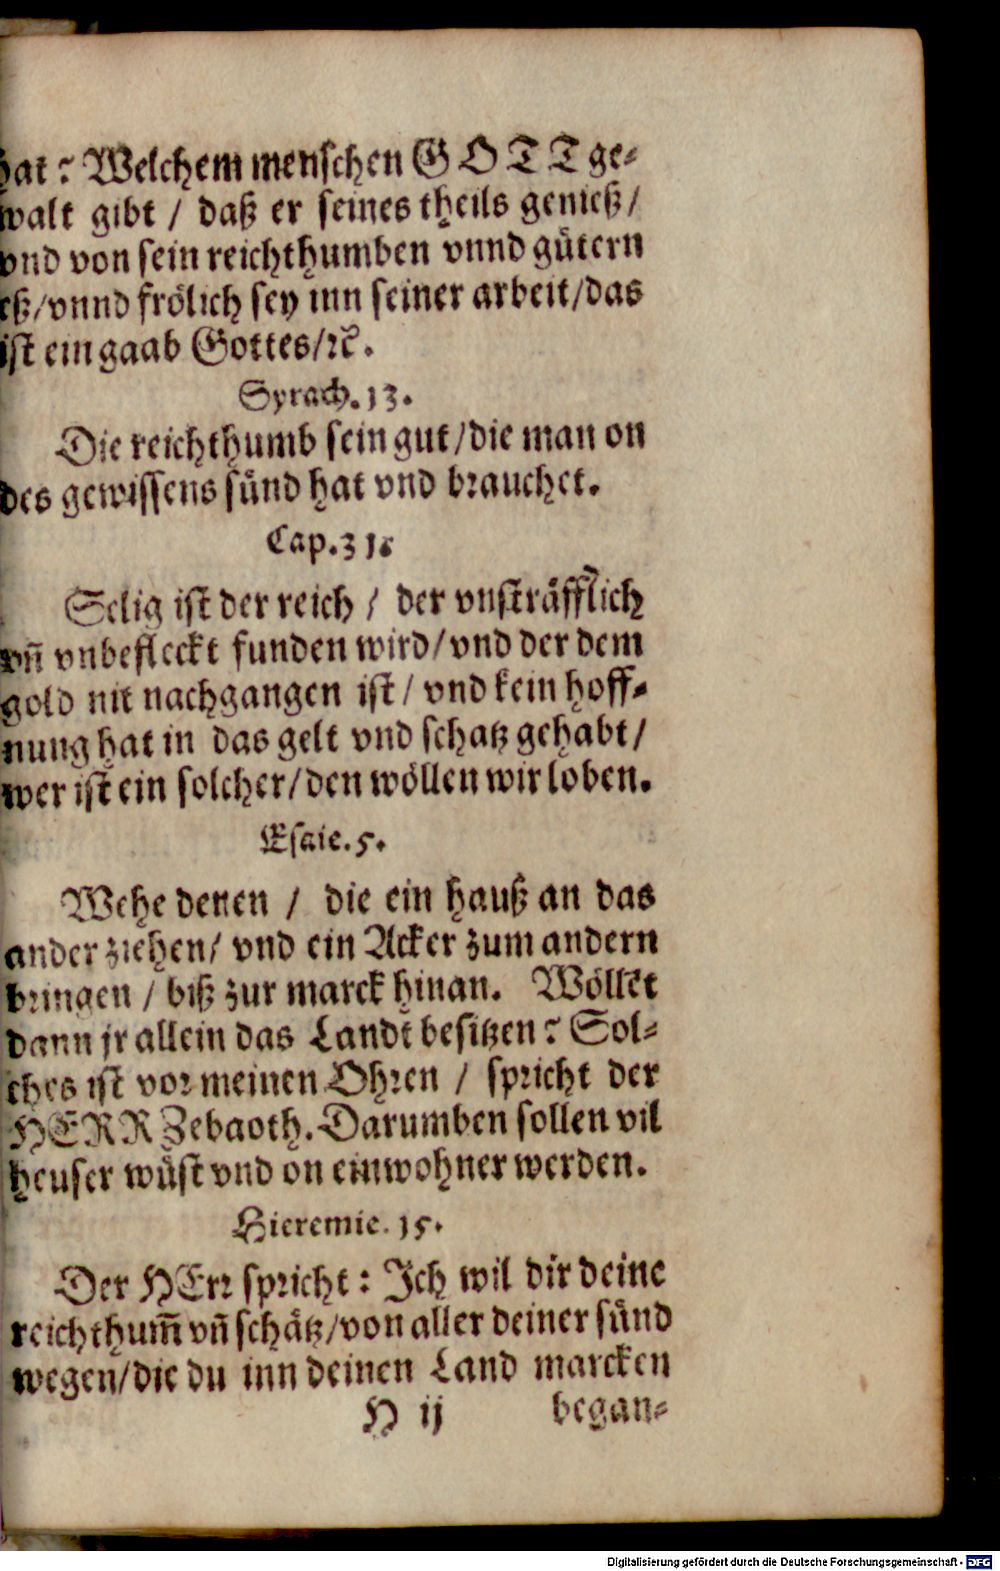 hat? Welchem menschen GOTT ge-
walt gibt / daß er seines theils genieß /
vnd von sein reichthumben vnnd gütern
eß/vnnd frölich sey inn seiner arbeit/das
ist ein gaab Gottes/ꝛc.
Syrach. 13.
Die reichthumb sein gut/die man on
des gewissens sünd hat vnd brauchet.
Cap. 31.
Selig ist der reich / der vnsträfflich
vñ vnbefleckt funden wird/vnd der dem
gold nit nachgangen ist / vnd kein hoff-
nung hat in das gelt vnd schatz gehabt /
wer ist ein solcher/den wöllen wir loben.
Esaie. 5.
Wehe denen / die ein hauß an das
ander ziehen/ vnd ein Acker zum andern
bringen / biß zur marck hinan. Wöllet
dann jr allein das Landt besitzen? Sol-
ches ist vor meinen Ohren / spricht der
HERR Zebaoth. Darumben sollen vil
heuser wüst vnd on einwohner werden.
Hieremie. 15.
Der HErr spricht: Ich wil dir deine
reichthum̃ vñ schätz/von aller deiner sünd
wegen/die du inn deinen Land marcken
H ij began-
Digitalisierung gefördert durch die Deutsche Forschungsgemeinschaft - DFG